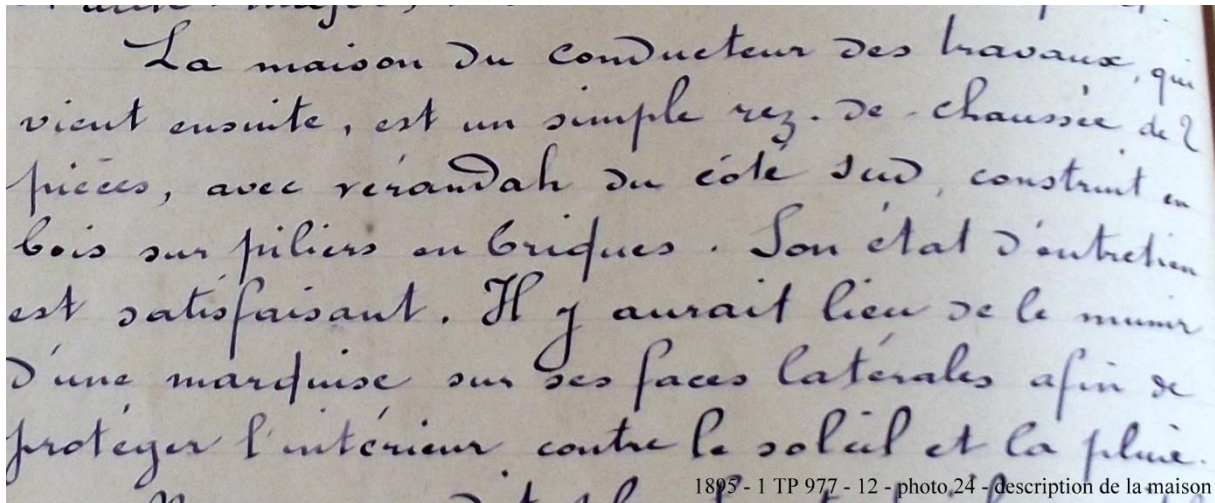 La maison du conducteur des travaux, qui
vient ensuite, est un simple rez-de-chaussée de 2
pièces, avec vérandah du côté Sud, construit en
bois sur piliers en briques. Son état d'entretien
est satisfaisant. Il y aurait lieu de le munir
d'une marquise sur ses faces latérales afin de
protéger l'intérieur contre le soleil et la pluie.
1895 - 1 TP 977 - 12 - photo 24 - description de la maison